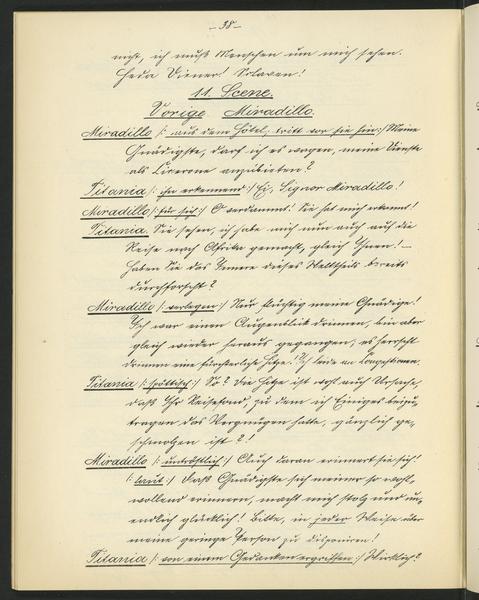 – 38 –
nicht, ich muß Menschen um mich sehen.
Heda Diener! Sclaven!
11. Scene.
Vorige. Miradillo.
Miradillo (: aus dem Hôtel, tritt vor sie hin :) Meine
Gnädigste, darf ich es wagen, meine Dienste
als Cicerone anzubieten?
Titania (: ihn erkennend :) Ei, Signor Miradillo!
Miradillo (: für sich :) O verdammt! Sie hat mich erkannt!
Titania. Sie sehen, ich habe mich nun auch auf die
Reise nach Afrika gemacht, gleich Ihnen! –
Haben Sie das Innere dieses Welttheils bereits
durchforscht?
Miradillo (: verlegen :) Nur flüchtig meine Gnädige!
Ich war einen Augenblick drinnen, bin aber
gleich wieder heraus gegangen, es herrscht
drinnen eine fürchterliche Hitze! Ich leide an Congestionen.
Titania (: spöttisch :) So? Die Hitze ist wohl auch Ursache,
daß Ihr Reisefond, zu dem ich Einiges beizu-
tragen das Vergnügen hatte, gänzlich ge-
schmolzen ist?!
Miradillo (: untröstlich :) Auch daran erinnert sie sich!
(: laut :) Daß Gnädigste sich meiner so wohl-
wollend erinnern, macht mich stolz und un-
endlich glücklich! Bitte, in jeder Weise über
meine geringe Person zu disponiren!
Titania (: von einem Gedanken ergriffen :) Wirklich?